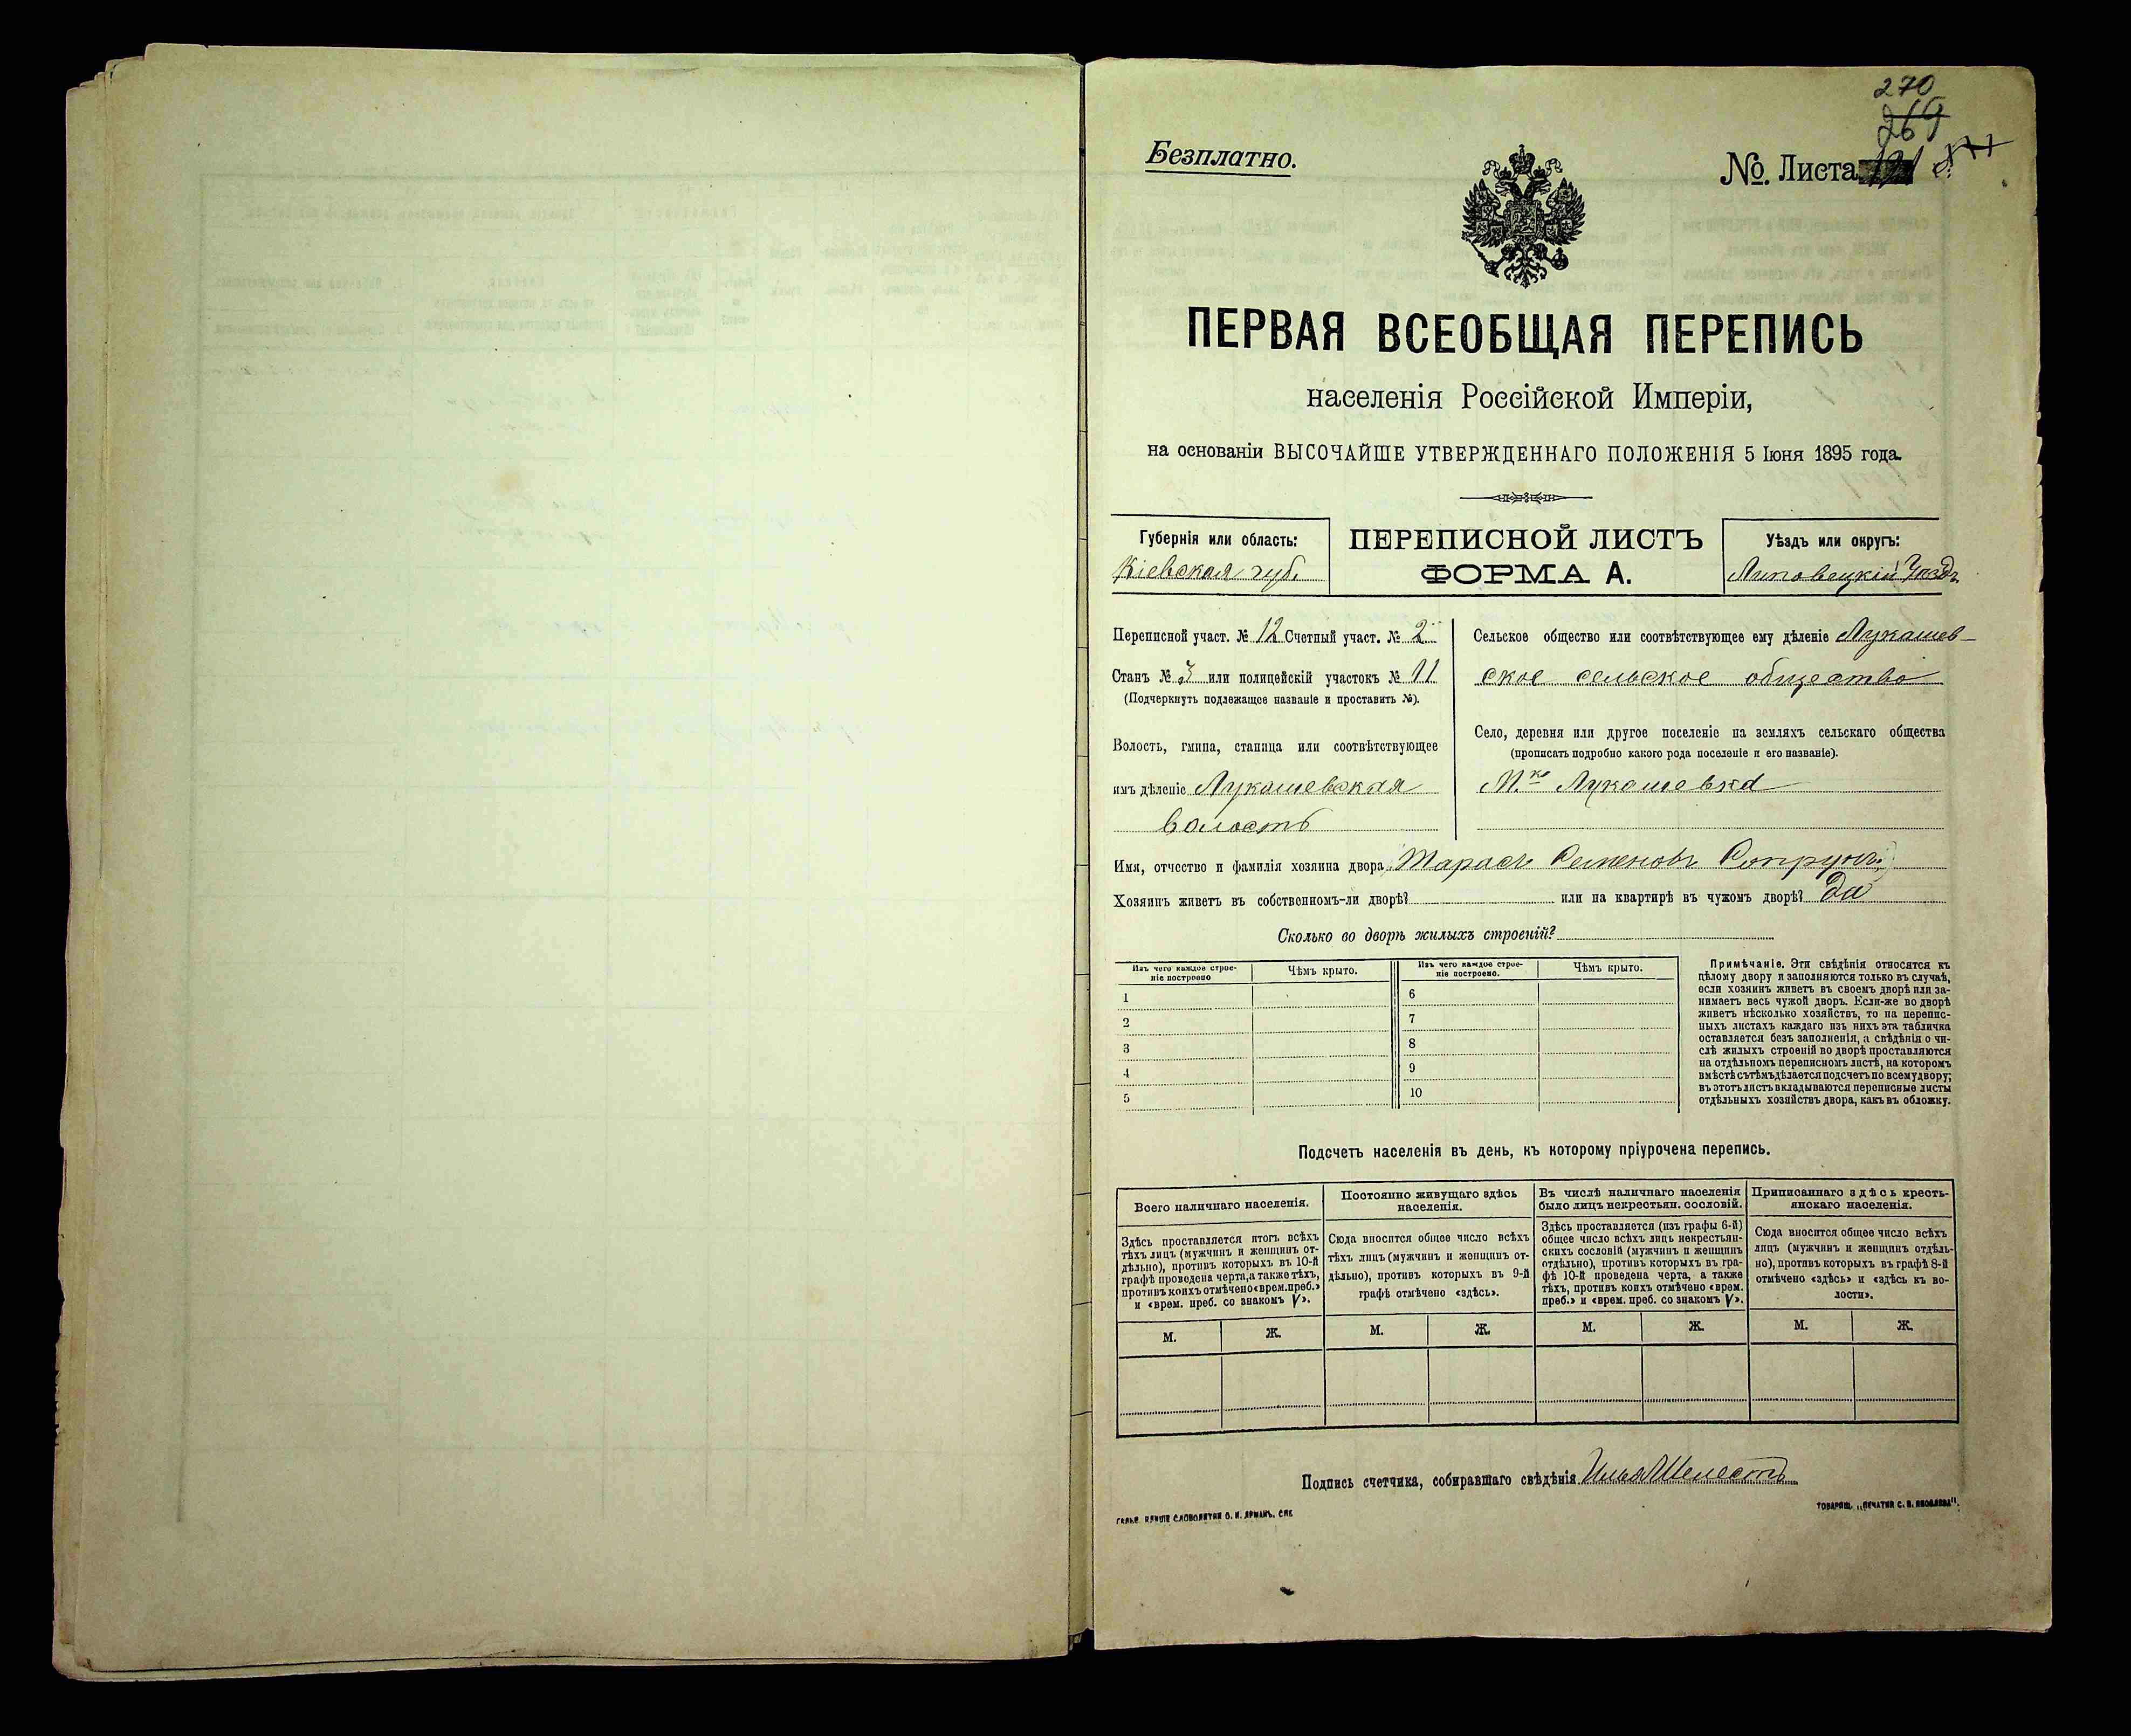 270
269
Безплатно.
№ Листа 121
ПЕРВАЯ ВСЕОБЩАЯ ПЕРЕПИСЬ
населенія Россійской Имперіи,
на основаніи ВЫСОЧАЙШЕ УТВЕРЖДЕННАГО ПОЛОЖЕНІЯ 5 Іюня 1895 года.
Губернія или область:
Кіевская губ.
ПЕРЕПИСНОЙ ЛИСТЪ
ФОРМА А.
Уѣздъ или округъ:
Липовецкій Уѣздъ
Переписной участ. № 12 Счетный участ. № 2
Станъ № 3 или полицейскій участокъ № 11
(Подчеркнуть подлежащее названіе и проставить №).
Волость, гмина, станица или соотвѣтствующее
имъ дѣленіе Лукашевская
волость
Сельское общество или соотвѣтствующее ему дѣленіе Лукашев-
ское сельское общество
Село, деревня или другое поселеніе на земляхъ сельскаго общества
(прописать подробно какого рода поселеніе и его названіе).
М.ко Лукашевка
Имя, отчество и фамилія хозяина двора Тарасъ Семеновъ Сопрунъ
Хозяинъ живетъ въ собственномъ-ли дворѣ? или на квартирѣ въ чужомъ дворѣ? Да
Сколько во дворѣ жилыхъ строеній?
Изъ чего каждое строе-
ніе построено
Чѣмъ крыто.
Изъ чего каждое строе-
ніе построено.
Чѣмъ крыто.
1
2
3
4
5
6
7
8
9
10
Примѣчаніе. Эти свѣдѣнія относятся къ
цѣлому двору и заполняются только въ случаѣ,
если хозяинъ живетъ въ своемъ дворѣ или за-
нимаетъ весь чужой дворъ. Если-же во дворѣ
живетъ нѣсколько хозяйствъ, то на перепис-
ныхъ листахъ каждаго изъ нихъ эта табличка
оставляется безъ заполненія, а свѣдѣнія о чи-
слѣ жилыхъ строеній во дворѣ проставляются
на отдѣльномъ переписномъ листѣ, на которомъ
вмѣстѣ съ тѣмъ дѣлается подсчетъ по всему двору;
въ этотъ листъ вкладываются переписные листы
отдѣльныхъ хозяйствъ двора, какъ въ обложку.
Подсчетъ населенія въ день, къ которому пріурочена перепись.
Всего наличнаго населенія.
Здѣсь проставляется итогъ всѣхъ
тѣхъ лицъ (мужчинъ и женщинъ от-
дѣльно), противъ которыхъ въ 10-й
графѣ проведена черта, а также тѣхъ,
противъ коихъ отмѣчено «врем. преб.»
и «врем. преб. со знакомъ V».
Постоянно живущаго здѣсь
населенія.
Сюда вносится общее число всѣхъ
тѣхъ лицъ (мужчинъ и женщинъ от-
дѣльно), противъ которыхъ въ 9-й
графѣ отмѣчено «здѣсь».
Въ числѣ наличнаго населенія
было лицъ некрестьян. сословій.
Здѣсь проставляется (изъ графы 6-й)
общее число всѣхъ лицъ некрестьян-
скихъ сословій (мужчинъ и женщинъ
отдѣльно), противъ которыхъ въ гра-
фѣ 10-й проведена черта, а также
тѣхъ, противъ коихъ отмѣчено «врем.
преб.» и «врем. преб. со знакомъ V».
Приписаннаго здѣсь кресть-
янскаго населенія.
Сюда вносится общее число всѣхъ
лицъ (мужчинъ и женщинъ отдѣль-
но), противъ которыхъ въ графѣ 8-й
отмѣчено «здѣсь» и «здѣсь къ во-
лости».
М. Ж. М. Ж. М. Ж. М. Ж.
Подпись счетчика, собиравшаго свѣдѣнія Илья Шелестъ
СЛОВОЛИТНИ О. И. ЛЕМАНЪ. СПБ
ТОВАРИЩ. „ПЕЧАТНЯ С. П. ЯКОВЛЕВА".